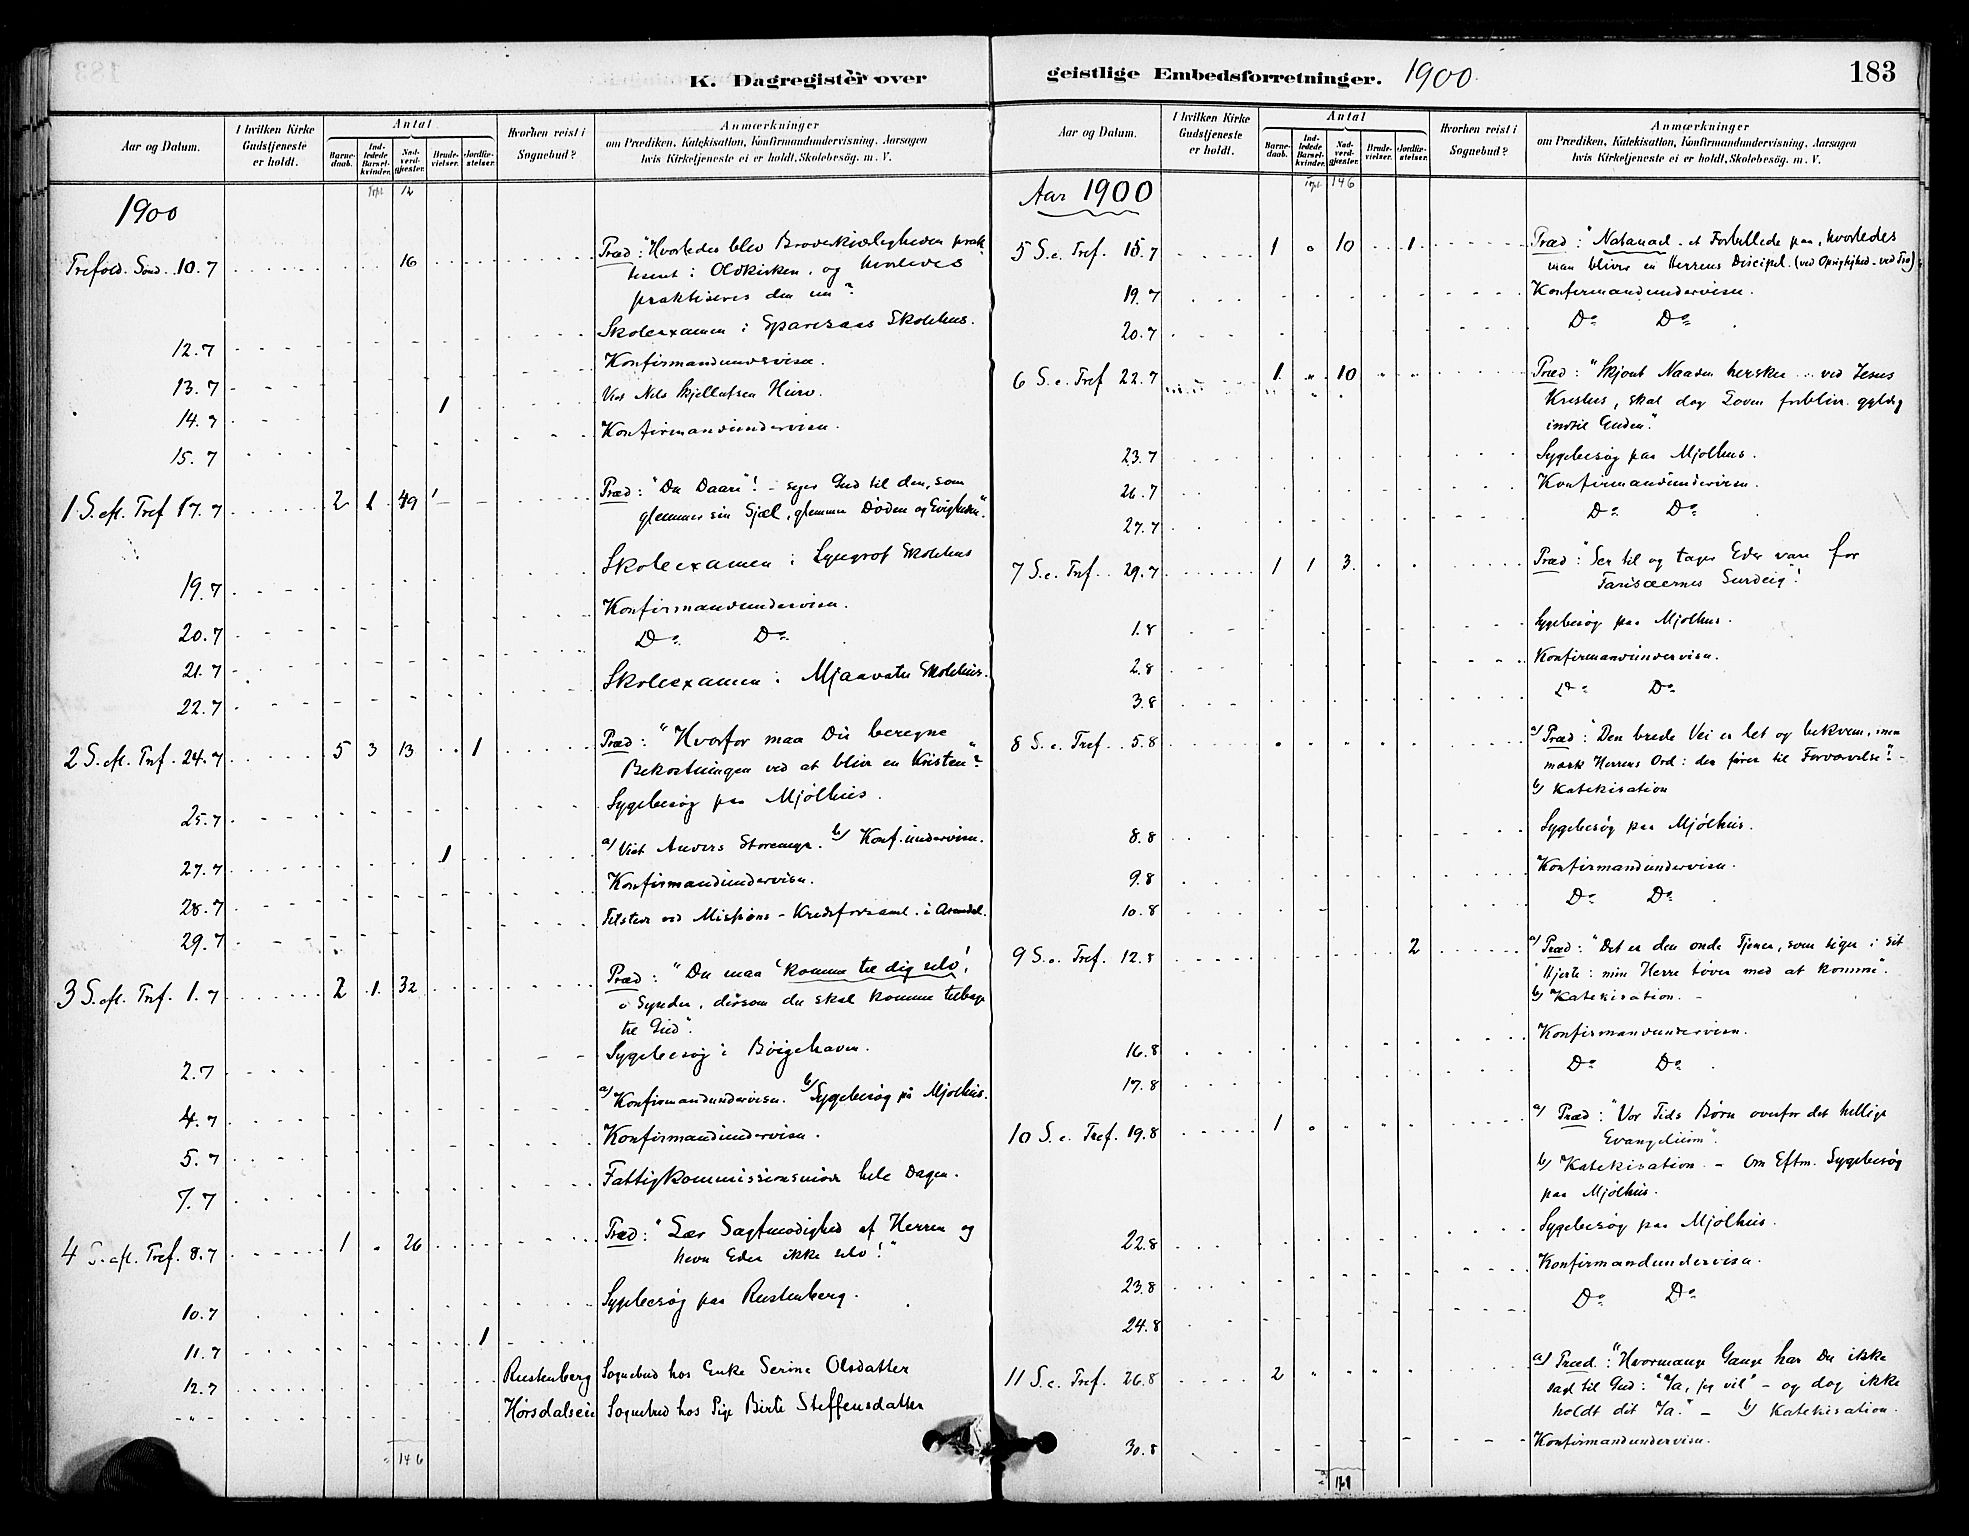 K. Dagregister over
geistlige Embedsforretninger. 1900
183
Aar og Datum.
I hvilken Kirke Gudstjeneste er holdt.
Antal
Barnedaab.
Indledede Barselkvinder.
Nadverdgjester.
Brudevielser.
Jordfæstelser.
Hvorhen reist i Sognebud?
Anmærkninger
om Prædiken, Katekisation, Konfirmandundervisning, Aarsagen
hvis Kirketjeneste ei er holdt, Skolebesög. m. V.
Trspt. 12
1900
Trefold. Sønd. 10.7 16 Præd: "Hvorledes blev Broderkjærligheden prak-
tiseret i Oldkirken, og hvorledes
praktiseres den nu"?
12.7 Skoleexamen i Skolehus.
13.7 Konfirmandundervisn.
14.7 1 Viet Nils
15.7 Konfirmandundervisn.
1 S. eft. Tref 17.7 2 1 49 Præd: "Du Daare"! – siger Gud til den, som
glemmer sin Sjæl, glemmer Døden og Evigheden".
19.7 Skoleexamen i Lyngrot Skolehus
20.7 Konfirmandundervisn.
21.7 Do Do
22.7 Skoleexamen i Mjaavatn Skolehus.
2 S. eft. Tref. 24.7 5 3 13 1 Præd: "Hvorfor maa Du beregne
Bekostningen ved at blive en Kristen"?
25.7 Sygebesøg paa Mjølhus.
27.7 1 a) Viet Anders b) Konf.undervisn.
28.7 Konfirmandundervisn.
29.7 Tilstede ved Missions-Kredsforsaml. i Arendal.
3 S. eft. Tref. 1.7 2 1 32 Præd: "Du maa 'komme til dig selv',
o Synder, dersom du skal komme tilbage
til Gud".
2.7 Sygebesøg i Bøigehaven.
4.7 a) Konfirmandundervisn. b) Sygebesøg på Mjølhus.
5.7 Konfirmandundervisn.
7.7 Fattigkommissionsmøde hele Dagen.
4 S. eft. Tref. 8.7 1 " 26 Præd: "Lær Sagtmodighed af Herren og
hevn Eder ikke selv!"
10.7 Sygebesøg paa Rustenberg.
11.7 1
12.7 Rustenberg Sognebud hos Enke Serine Olsdatter
-"- Hørsdalseie Sognebud hos Pige Birte Steffensdatter
146
Aar og Datum.
I hvilken Kirke Gudstjeneste er holdt.
Antal
Barnedaab.
Indledede Barselkvinder.
Nadverdgjester.
Brudevielser.
Jordfæstelser.
Hvorhen reist i Sognebud?
Anmærkninger
om Prædiken, Katekisation, Konfirmandundervisning, Aarsagen
hvis Kirketjeneste ei er holdt, Skolebesög. m. V.
Trspt. 146
Aar 1900
5 S. e. Tref. 15.7 1 " 10 1 Præd: "Natanael – et Forbillede paa, hvorledes
man bliver en Herrens Discipel. (ved Oprigtighed – ved Tro)
19.7 Konfirmandundervisn.
20.7 Do Do
6 S. e. Tref 22.7 1 " 10 " " Præd: "Skjønt Naaden hersker ved Jesus
Kristus, skal dog Loven forblive gyldig
indtil Enden".
23.7 Sygebesøg paa Mjølhus.
26.7 Konfirmandundervisn.
27.7 Do Do
7 S. e. Tref. 29.7 1 1 3 Præd: "Ser til og tager Eder vare for
Farisæernes Surdeig"!
1.8 Sygebesøg paa Mjølhus.
2.8 Konfirmandundervisn.
3.8 Do Do
8 S. e. Tref. 5.8 " " " " " a) Præd: "Den brede Vei er let og bekvem, men
mærk Herrens Ord: den fører til Fordærvelse"! –
b) Katekisation
8.8 Sygebesøg paa Mjølhus.
9.8 Konfirmandundervisn.
10.8 Do Do
9 S. e. Tref. 12.8 2 a) Præd: "Det er den onde Tjener, som siger i sit
Hjerte: min Herre tøver med at komme".
b) Katekisation. –
16.8 Konfirmandundervisn.
17.8 Do Do
10 S. e. Tref. 19.8 1 " " " " a) Præd: "Vor Tids Børn overfor det hellige
Evangelium".
b) Katekisation. – Om Eftm. Sygebesøg
paa Mjølhus.
22.8 Sygebesøg paa Mjølhus.
23.8 Konfirmandundervisn.
24.8 Do Do
11 S. e. Tref. 26.8 2 " " " " a) Præd: "Hvormange Gange har Du ikke
sagt til Gud: "Ja, jeg vil" – og dog ikke
holdt dit Ja." – b) Katekisation.
30.8 Konfirmandundervisn.